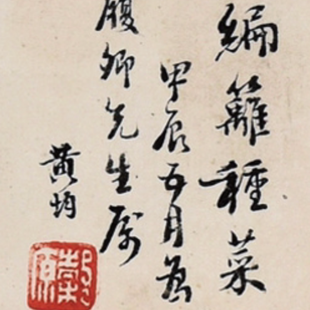 編籬種菜
甲辰五月為
履卿先生屬
黃均